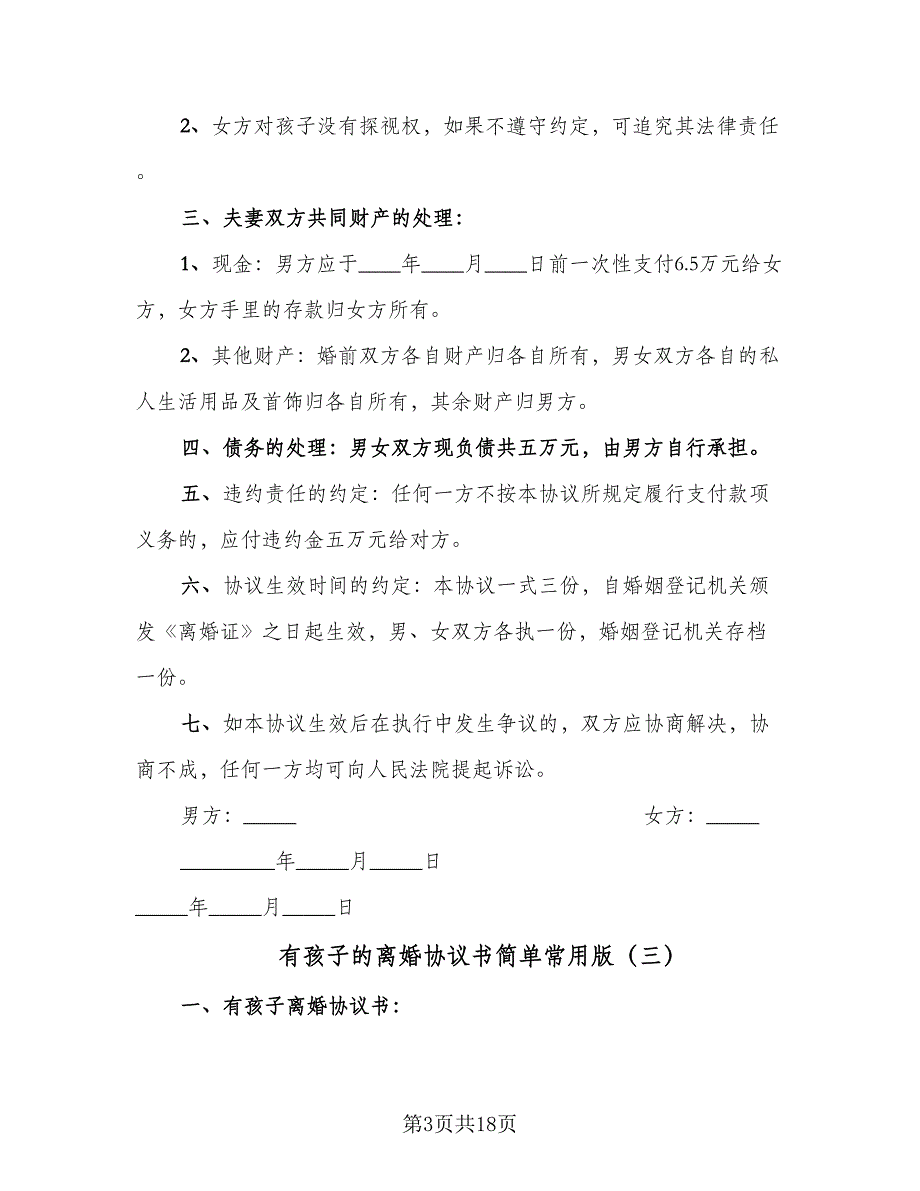 2、女方对孩子没有探视权，如果不遵守约定，可追究其法律责任
。
三、夫妻双方共同财产的处理：
1、现金：男方应于____年____月____日前一次性支付6.5万元给女
方，女方手里的存款归女方所有。
2、其他财产：婚前双方各自财产归各自所有，男女双方各自的私
人生活用品及首饰归各自所有，其余财产归男方。
四、债务的处理：男女双方现负债共五万元，由男方自行承担。
五、违约责任的约定：任何一方不按本协议所规定履行支付款项
义务的，应付违约金五万元给对方。
六、协议生效时间的约定：本协议一式三份，自婚姻登记机关颁
发《离婚证》之日起生效，男、女双方各执一份，婚姻登记机关存档
一份。
七、如本协议生效后在执行中发生争议的，双方应协商解决，协
商不成，任何一方均可向人民法院提起诉讼。
男方：_____ 女方：_____
_________年_____月_____日
_____年_____月_____日
有孩子的离婚协议书简单常用版（三）
一、有孩子离婚协议书：
第3页共18页